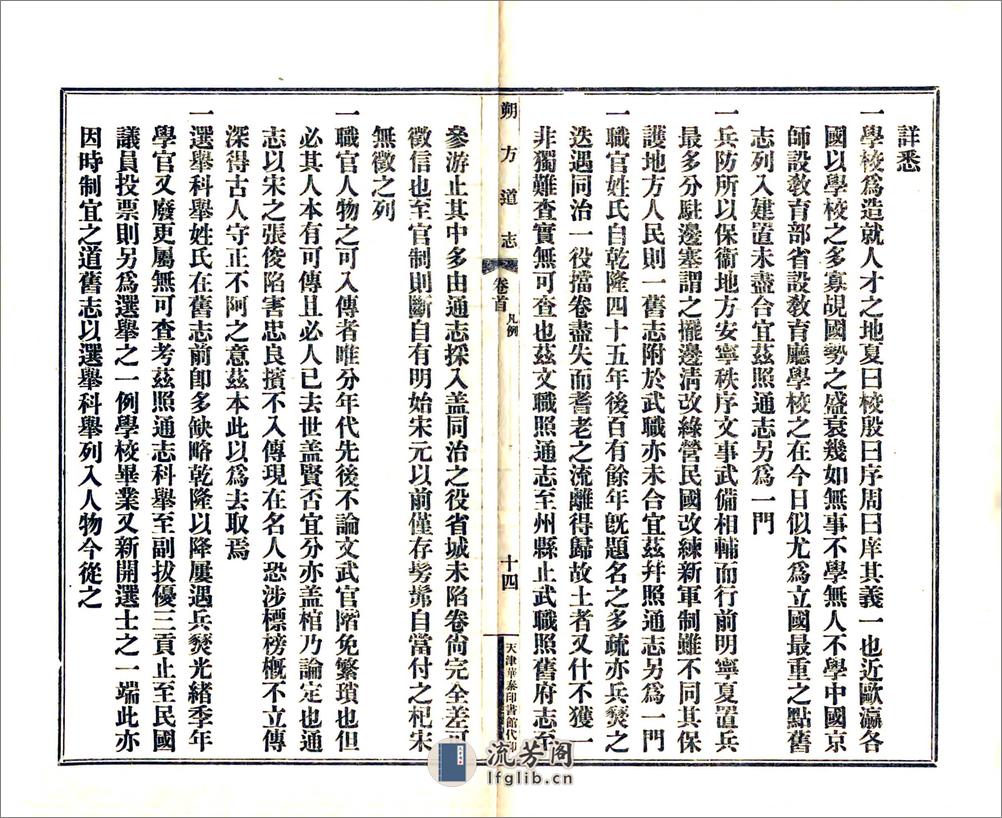 詳悉
一學校爲造就人才之地夏曰校殷曰序周曰庠其義一也近歐瀛各
國以學校之多寡覘國勢之盛衰幾如無事不學無人不學中國京
師設教育部省設教育廳學校之在今日似尤爲立國最重之點舊
志列入建置未盡合宜茲照通志另爲一門
一兵防所以保衞地方安寧秩序文事武備相輔而行前明寧夏置兵
最多分駐邊塞謂之擺邊淸改綠營民國改練新軍制雖不同其保
護地方人民則一舊志附於武職亦未合宜茲幷照通志另爲一門
一職官姓氏自乾隆四十五年後百有餘年旣題名之多疏亦兵燹之
迭遇同治一役擋卷盡失而耆老之流離得歸故土者又什不獲一
非獨難查實無可查也茲文職照通志至州縣止武職照舊府志至
朔方道志
卷首
凡例
十四
天津華泰印書館代印
參游止其中多由通志採入盖同治之役省城未陷卷尙完全差可
徵信也至官制則斷自有明始宋元以前僅存髣髴自當付之杞宋
無徵之列
一職官人物之可入傳者唯分年代先後不論文武官階免繁瑣也但
必其人本有可傳且必人已去世盖賢否宜分亦盖棺乃論定也通
志以宋之張俊陷害忠良擯不入傳現在名人恐涉標榜槪不立傳
深得古人守正不阿之意茲本此以爲去取焉
一選舉科舉姓氏在舊志前卽多缺略乾隆以降屢遇兵燹光緖季年
學官又廢更屬無可查考茲照通志科舉至副拔優三貢止至民國
議員投票則另爲選舉之一例學校畢業又新開選士之一端此亦
因時制宜之道舊志以選舉科舉列入人物今從之
流芳阁
lfglib.cn